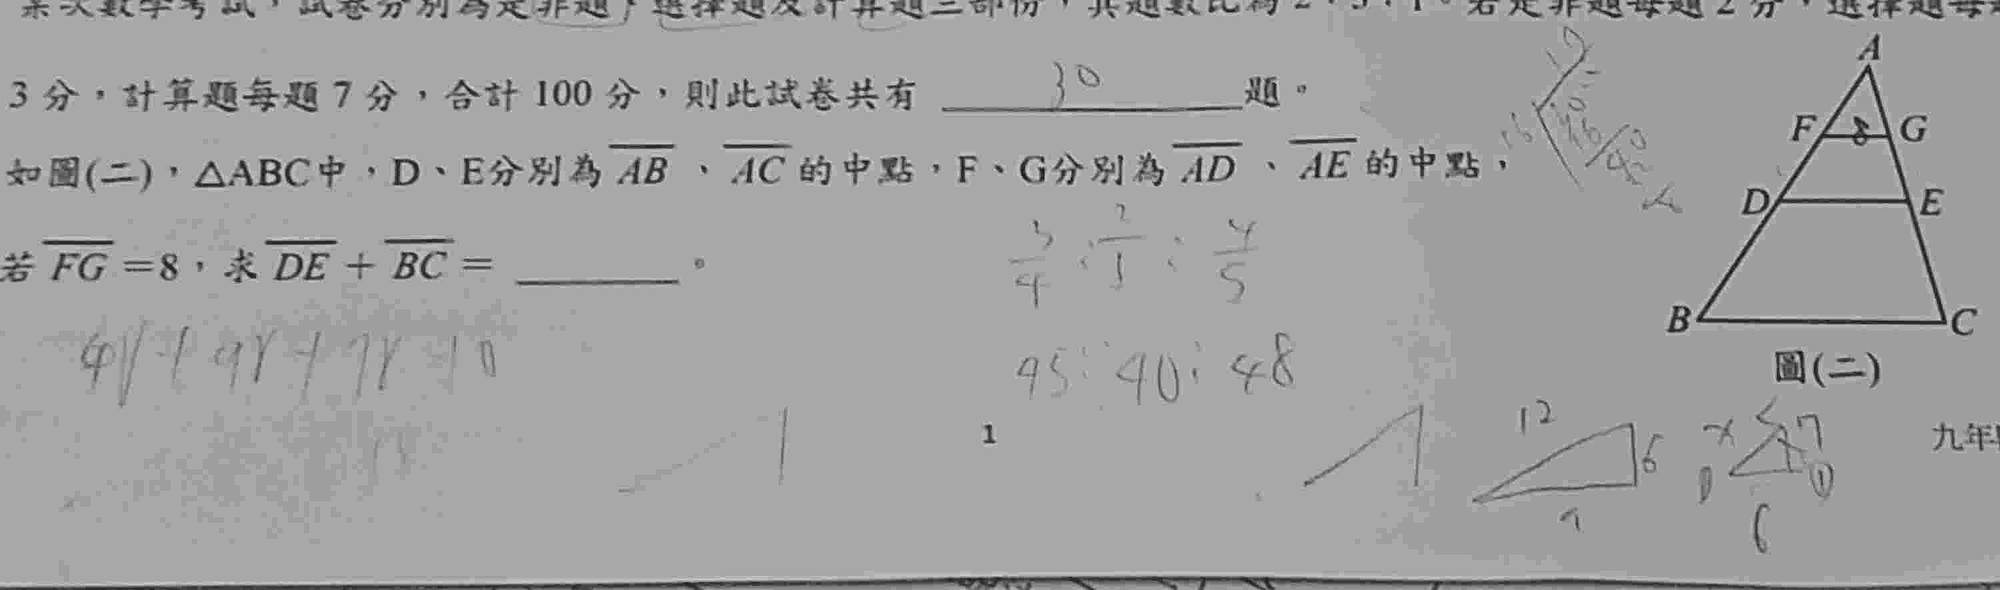 某次數學考試，試卷分別為是非題，選擇題及計算題三部份，其題數比為2：3：1。若是非題每題2分，選擇題每題
3分，計算題每題7分，合計100分，則此試卷共有 30 題。
如圖(二)，△ABC中，D、E分別為AB、AC的中點，F、G分別為AD、AE的中點，
若FG=8，求DE+BC= 。
A
F 8 G
D E
B C
圖(二)
45:40:48
12
6
1
九年